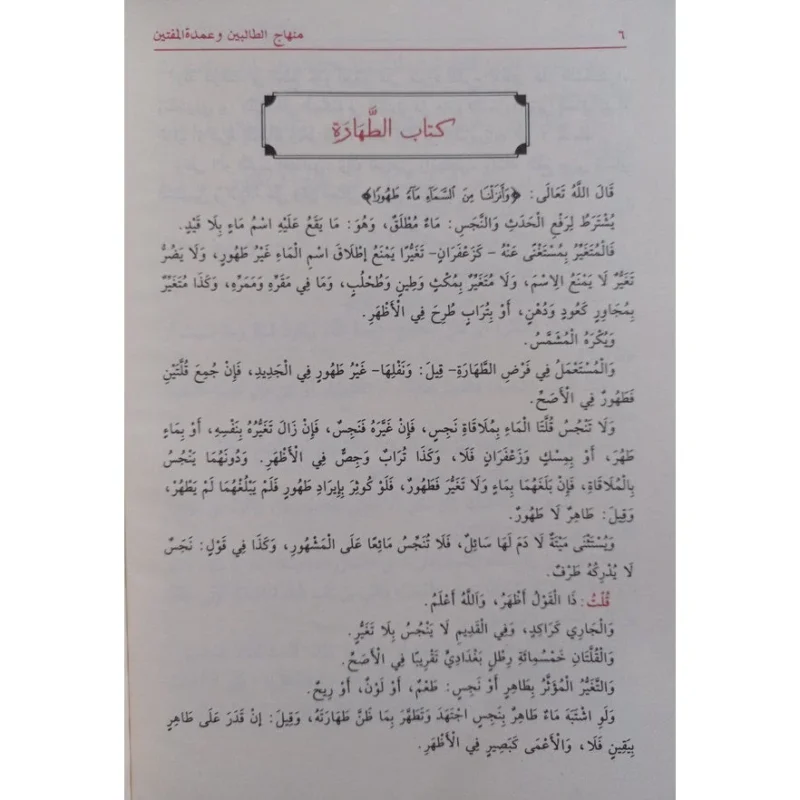 ٦ منهاج الطالبين وعمدة المفتين
كتاب الطَّهَارَةِ
قَالَ اللَّهُ تَعَالَى: ﴿وَأَنزَلْنَا مِنَ ٱلسَّمَآءِ مَآءً طَهُورًا﴾
يُشْتَرَطُ لِرَفْعِ الْحَدَثِ وَالنَّجَسِ: مَاءٌ مُطْلَقٌ، وَهُوَ: مَا يَقَعُ عَلَيْهِ اسْمُ مَاءٍ بِلَا قَيْدٍ.
فَالْمُتَغَيِّرُ بِمُسْتَغْنًى عَنْهُ - كَزَعْفَرَانٍ- تَغَيُّرًا يَمْنَعُ إِطْلَاقَ اسْمِ الْمَاءِ غَيْرُ طَهُورٍ، وَلَا يَضُرُّ
تَغَيُّرٌ لَا يَمْنَعُ الِاسْمَ، وَلَا مُتَغَيِّرٌ بِمُكْثٍ وَطِينٍ وَطُحْلُبٍ، وَمَا فِي مَقَرِّهِ وَمَمَرِّهِ، وَكَذَا مُتَغَيِّرٌ
بِمُجَاوِرٍ كَعُودٍ وَدُهْنٍ، أَوْ بِتُرَابٍ طُرِحَ فِي الْأَظْهَرِ.
وَيُكْرَهُ الْمُشَمَّسُ.
وَالْمُسْتَعْمَلُ فِي فَرْضِ الطَّهَارَةِ- قِيلَ: وَنَفْلِهَا- غَيْرُ طَهُورٍ فِي الْجَدِيدِ، فَإِنْ جُمِعَ قُلَّتَيْنِ
فَطَهُورٌ فِي الْأَصَحِّ.
وَلَا تَنْجُسُ قُلَّتَا الْمَاءِ بِمُلَاقَاةِ نَجِسٍ، فَإِنْ غَيَّرَهُ فَنَجِسٌ، فَإِنْ زَالَ تَغَيُّرُهُ بِنَفْسِهِ، أَوْ بِمَاءٍ
طَهُرَ، أَوْ بِمِسْكٍ وَزَعْفَرَانٍ فَلَا، وَكَذَا تُرَابٌ وَجِصٌّ فِي الْأَظْهَرِ. وَدُونَهُمَا يَنْجُسُ
بِالْمُلَاقَاةِ، فَإِنْ بَلَغَهُمَا بِمَاءٍ وَلَا تَغَيُّرَ فَطَهُورٌ، فَلَوْ كُوثِرَ بِإِيرَادِ طَهُورٍ فَلَمْ يَبْلُغْهُمَا لَمْ يَطْهُرْ،
وَقِيلَ: طَاهِرٌ لَا طَهُورٌ.
وَيُسْتَثْنَى مَيْتَةٌ لَا دَمَ لَهَا سَائِلٌ، فَلَا تُنَجِّسُ مَائِعًا عَلَى الْمَشْهُورِ، وَكَذَا فِي قَوْلٍ: نَجَسٌ
لَا يُدْرِكُهُ طَرْفٌ.
قُلْتُ: ذَا الْقَوْلُ أَظْهَرُ، وَاللَّهُ أَعْلَمُ.
وَالْجَارِي كَرَاكِدٍ، وَفِي الْقَدِيمِ لَا يَنْجُسُ بِلَا تَغَيُّرٍ.
وَالْقُلَّتَانِ خَمْسُمِائَةِ رِطْلٍ بَغْدَادِيٍّ تَقْرِيبًا فِي الْأَصَحِّ.
وَالتَّغَيُّرُ الْمُؤَثِّرُ بِطَاهِرٍ أَوْ نَجِسٍ: طَعْمٌ، أَوْ لَوْنٌ، أَوْ رِيحٌ.
وَلَوِ اشْتَبَهَ مَاءٌ طَاهِرٌ بِنَجِسٍ اجْتَهَدَ وَتَطَهَّرَ بِمَا ظَنَّ طَهَارَتَهُ، وَقِيلَ: إِنْ قَدَرَ عَلَى طَاهِرٍ
بِيَقِينٍ فَلَا، وَالْأَعْمَى كَبَصِيرٍ فِي الْأَظْهَرِ.